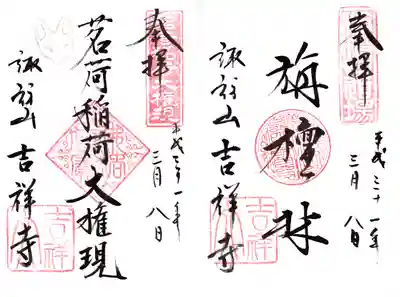 奉拝
平成三十一年
三月八日
旃檀林
諏訪山吉祥寺
吉祥寺
奉拝
平成三十一年
三月八日
茗荷稲荷大権現
諏訪山吉祥寺
吉祥寺